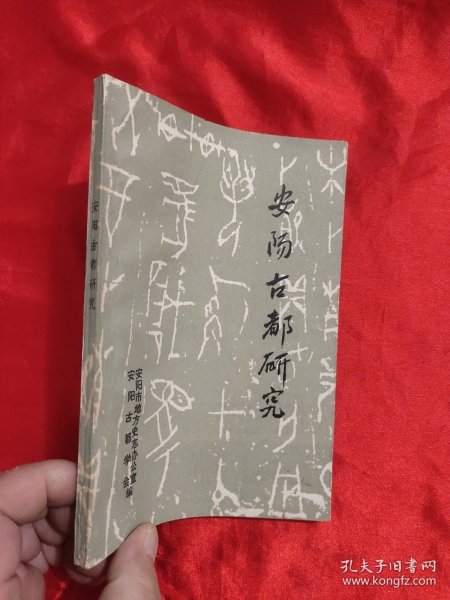 安阳古都研究
安阳市地方史志办公室
安阳古都学会编
安阳古都研究
孔夫子旧书网
www.kongfz.com